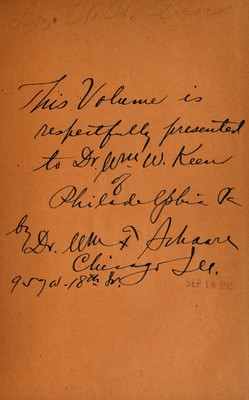 This Volume is
respectfully presented
to Dr. Wm W. Keen
of
Philadelphia Pa
by
Dr. Wm F
Chicago Ill.
957 W. 18th St.
SEP 18